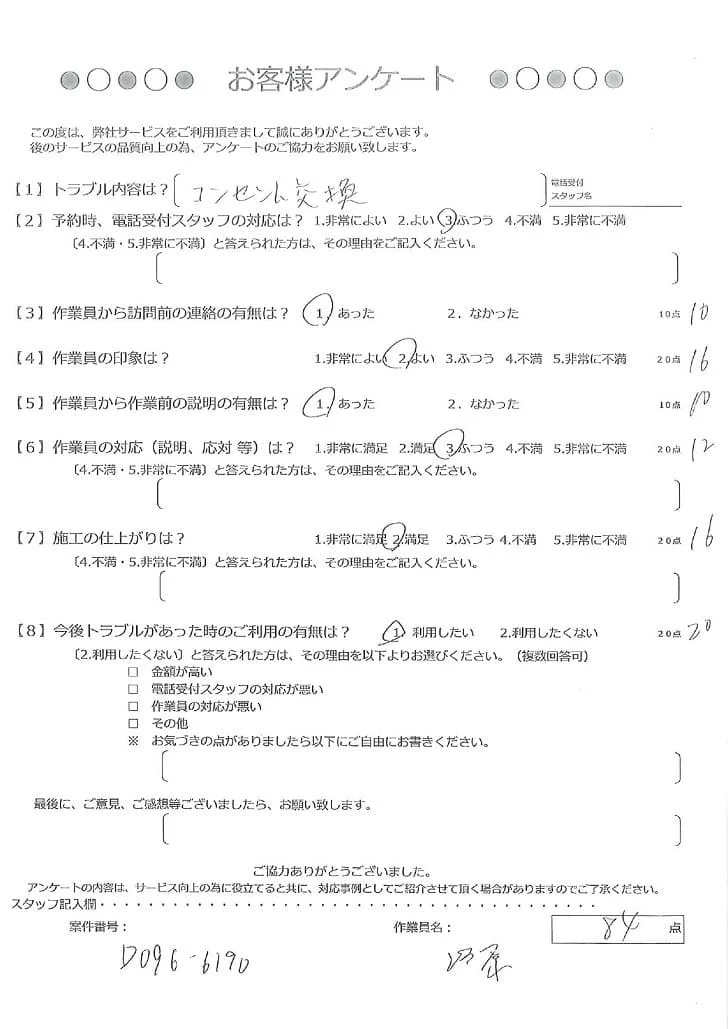 お客様アンケート
この度は、弊社サービスをご利用頂きまして誠にありがとうございます。
後のサービスの品質向上の為、アンケートのご協力をお願い致します。
【1】トラブル内容は？ コンセント交換 電話受付
スタッフ名
【2】予約時、電話受付スタッフの対応は？ 1.非常によい 2.よい 3.ふつう 4.不満 5.非常に不満
〔4.不満・5.非常に不満〕と答えられた方は、その理由をご記入ください。
【3】作業員から訪問前の連絡の有無は？ 1. あった 2. なかった 10点 10
【4】作業員の印象は？ 1.非常によい 2.よい 3.ふつう 4.不満 5.非常に不満 20点 16
【5】作業員から作業前の説明の有無は？ 1. あった 2. なかった 10点 10
【6】作業員の対応（説明、応対 等）は？ 1.非常に満足 2.満足 3.ふつう 4.不満 5.非常に不満 20点 12
〔4.不満・5.非常に不満〕と答えられた方は、その理由をご記入ください。
【7】施工の仕上がりは？ 1.非常に満足 2.満足 3.ふつう 4.不満 5.非常に不満 20点 16
〔4.不満・5.非常に不満〕と答えられた方は、その理由をご記入ください。
【8】今後トラブルがあった時のご利用の有無は？ 1 利用したい 2.利用したくない 20点 20
〔2.利用したくない〕と答えられた方は、その理由を以下よりお選びください。（複数回答可）
□ 金額が高い
□ 電話受付スタッフの対応が悪い
□ 作業員の対応が悪い
□ その他
※ お気づきの点がありましたら以下にご自由にお書きください。
最後に、ご意見、ご感想等ございましたら、お願い致します。
ご協力ありがとうございました。
アンケートの内容は、サービス向上の為に役立てると共に、対応事例としてご紹介させて頂く場合がありますのでご了承ください。
スタッフ記入欄・・・・・・・・・・・・・・・・・・・・・・・・・・・・・・・・・・・・・・・・・
案件番号： 作業員名： 84 点
D096-6190